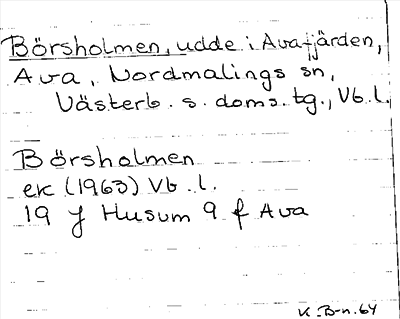 Börsholmen, udde i Avafjärden,
Ava, Nordmalings sn,
Västerb. s. doms. tg., Vb. l.
Börsholmen
ek (1963) Vb. l.
19 J Husum 9 f Ava
K. B-n. 64